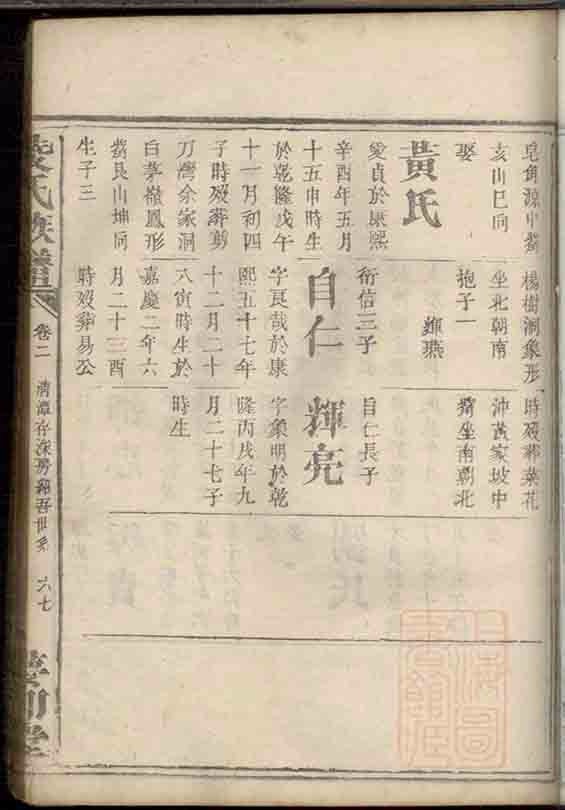 皂角源中嘴
亥山巳向
娶
黃氏
愛貞於康熙
辛酉年五月
十五申時生
於乾隆戊午
十一月初四
子時歿葬剪
刀灣余家洞
白茅嶺鳳形
嘴艮山坤向
生子三
楊樹洞象形
坐北朝南
抱子一
輝燕
衍信三子
自仁
字良哉於康
熙五十七年
十二月二十
八寅時生於
嘉慶二年六
月二十三酉
時歿葬易公
時歿葬菜花
沖黃家坡中
嘴坐南朝北
自仁長子
輝亮
字象明於乾
隆丙戌年九
月二十七子
時生
氏族譜
卷二
清潭存深房錫吾世系
六七